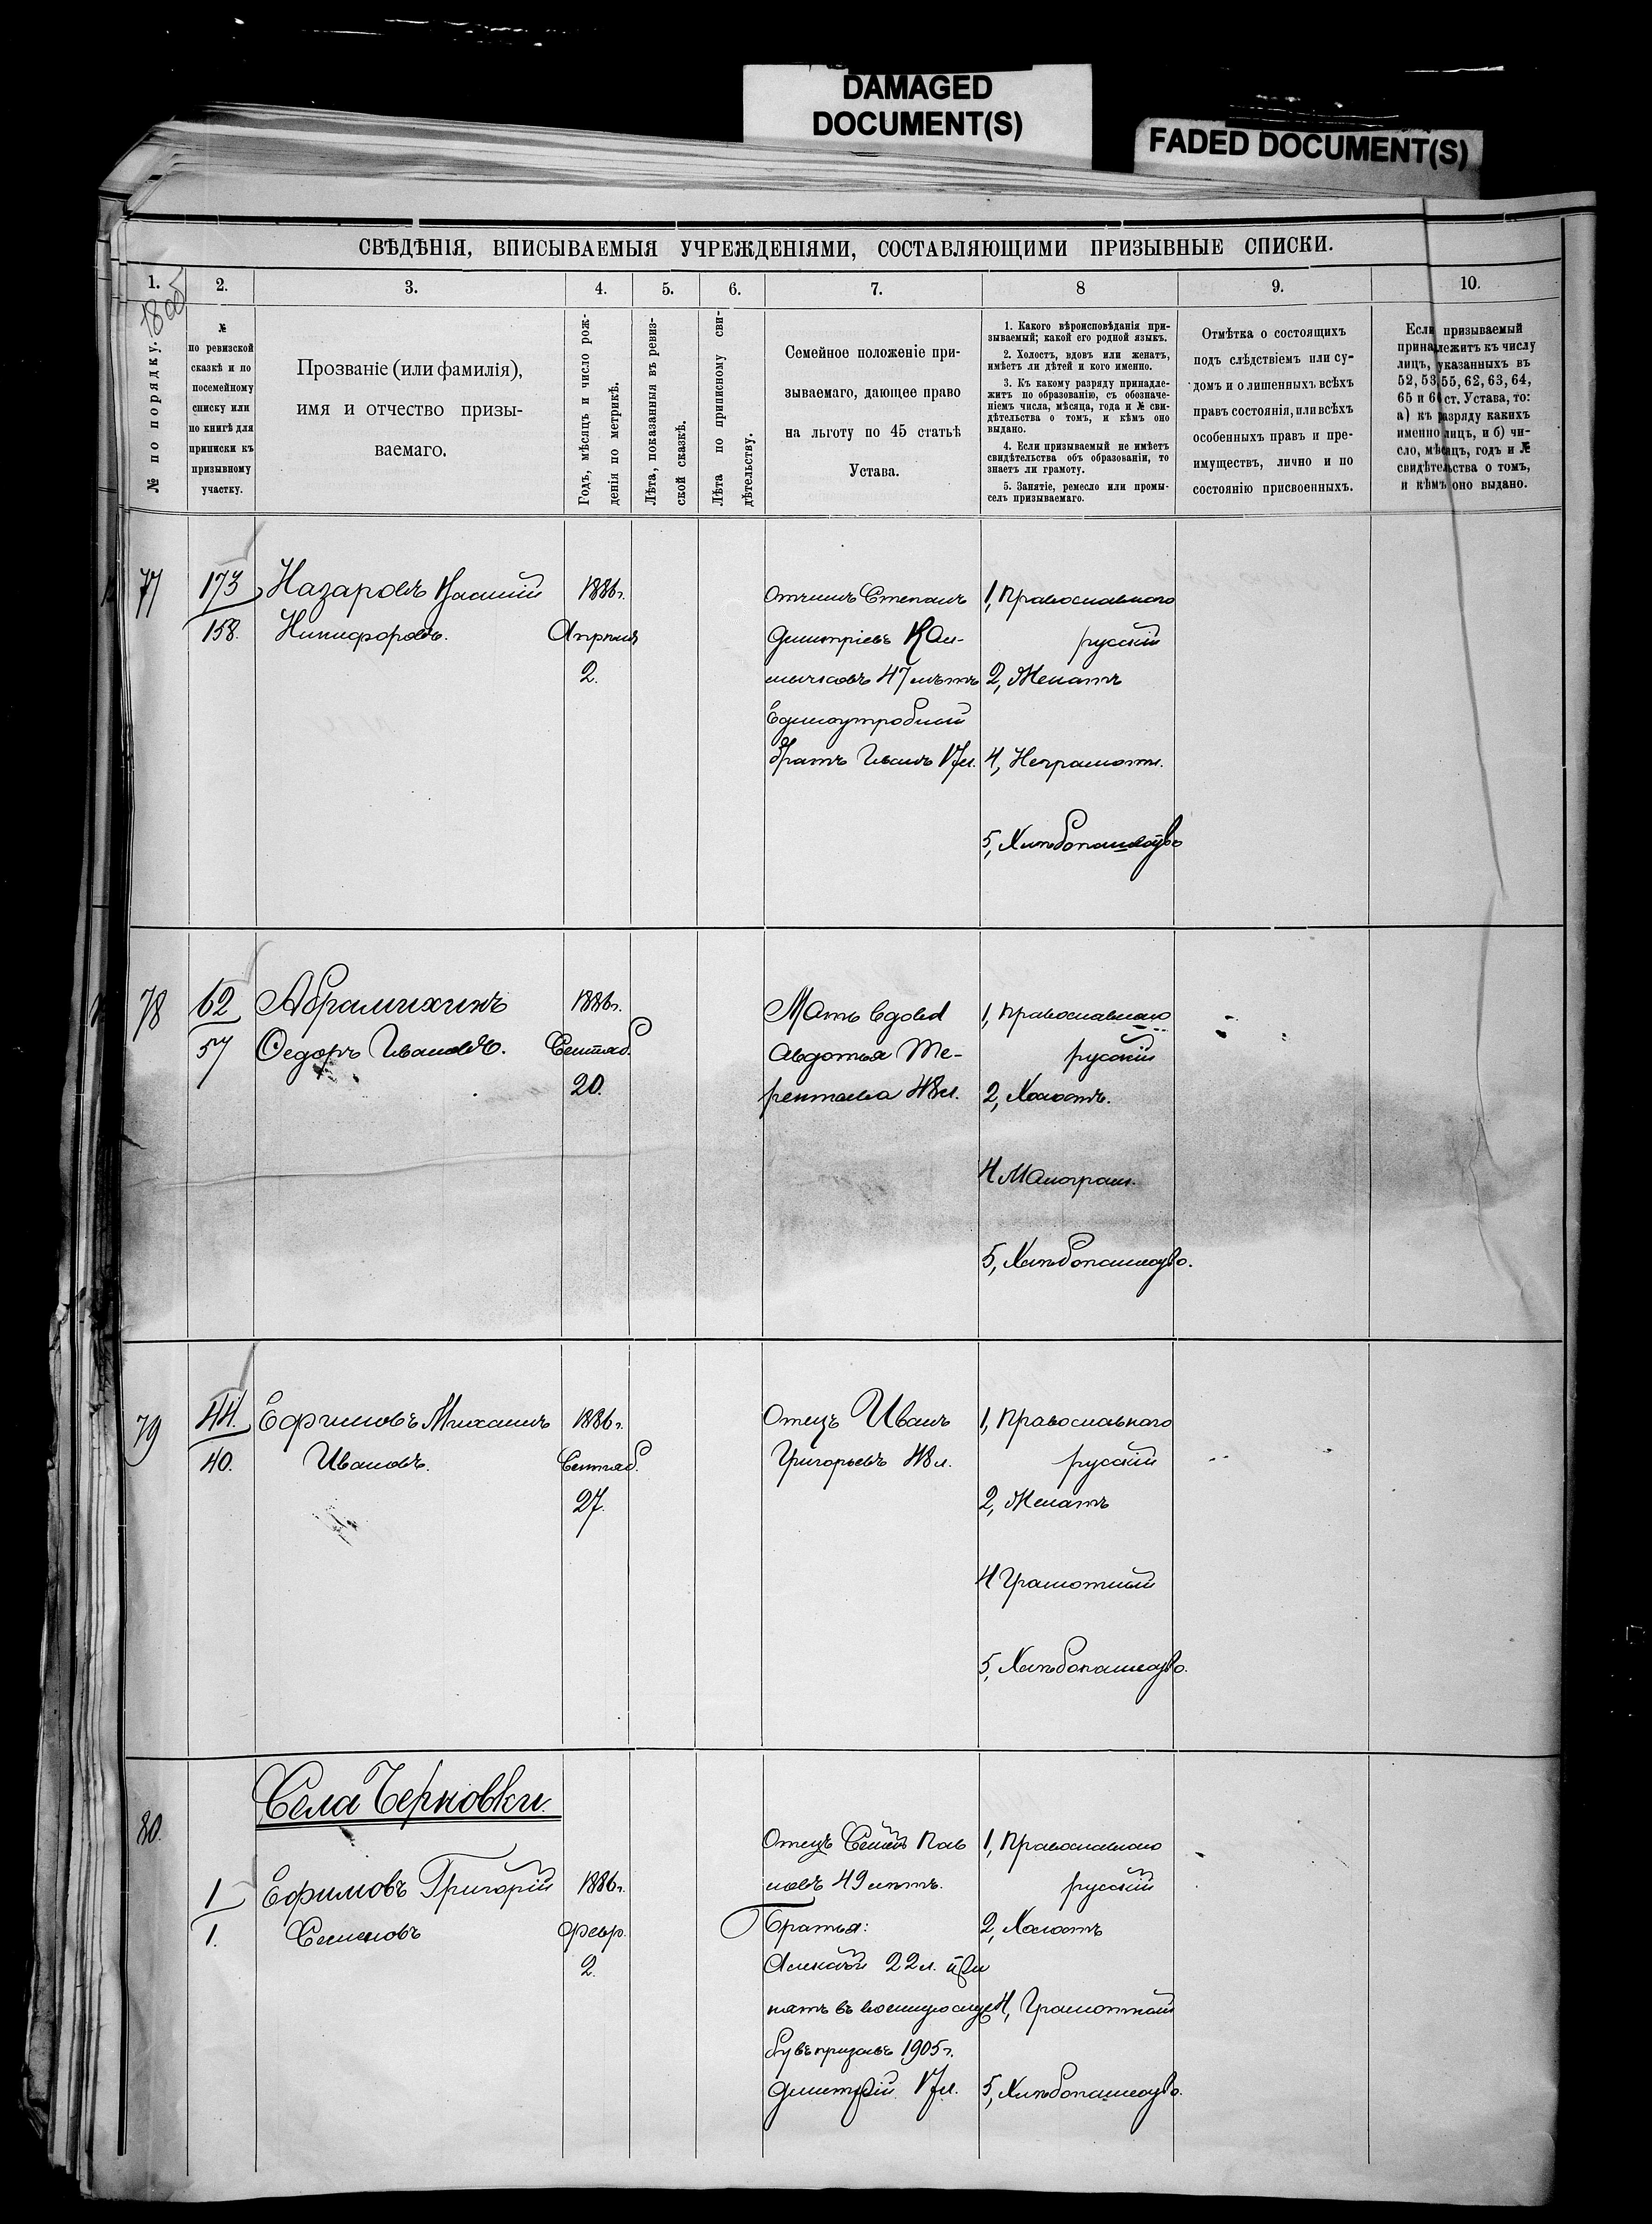 DAMAGED
DOCUMENT(S)
FADED DOCUMENT(S)
СВѢДѢНІЯ, ВПИСЫВАЕМЫЯ УЧРЕЖДЕНІЯМИ, СОСТАВЛЯЮЩИМИ ПРИЗЫВНЫЕ СПИСКИ.
1.
2.
3.
4.
5.
6.
7.
8
9.
10.
№ по порядку.
№
по ревизской
сказкѣ и по
посемейному
списку или
по книгѣ для
приписки къ
призывному
участку.
Прозваніе (или фамилія),
имя и отчество призы-
ваемаго.
Годъ, мѣсяцъ и число рож-
денія по метрикѣ.
Лѣта, показанныя въ ревиз-
ской сказкѣ.
Лѣта по приписному сви-
дѣтельству.
Семейное положеніе при-
зываемаго, дающее право
на льготу по 45 статьѣ
Устава.
1. Какого вѣроисповѣданія при-
зываемый; какой его родной языкъ.
2. Холостъ, вдовъ или женатъ,
имѣетъ ли дѣтей и кого именно.
3. Къ какому разряду принадле-
житъ по образованію, съ обозначе-
ніемъ числа, мѣсяца, года и № сви-
дѣтельства о томъ, и кѣмъ оно
выдано.
4. Если призываемый не имѣетъ
свидѣтельства объ образованіи, то
знаетъ ли грамоту.
5. Занятіе, ремесло или промы-
селъ призываемаго.
Отмѣтка о состоящихъ
подъ слѣдствіемъ или су-
домъ и о лишенныхъ всѣхъ
правъ состоянія, или всѣхъ
особенныхъ правъ и пре-
имуществъ, лично и по
состоянію присвоенныхъ.
Если призываемый
принадлежитъ къ числу
лицъ, указанныхъ въ
52, 53, 55, 62, 63, 64,
65 и 66 ст. Устава, то:
а) къ разряду какихъ
именно лицъ, и б) чи-
сло, мѣсяцъ, годъ и №
свидѣтельства о томъ,
и кѣмъ оно выдано.
77
173
158.
Назаровъ Василій
Никифоровъ.
1886г.
Апрѣля
2.
Отчимъ Степанъ
Дмитріевъ
47 лѣтъ
Единоутробный
братъ Иванъ 17л.
1, Православнаго
русскій
2, Женатъ
4, Неграмотн.
5, Хлѣбопашество
78
62
57
Абрамихинъ
Ѳедоръ Ивановъ.
1886г.
Сентяб.
20.
Мать вдова
Авдотья Те-
рентьева 48л.
1, Православнаго
русскій
2, Холостъ.
4 Малограм.
5, Хлѣбопашество.
79
44.
40.
Ефимовъ Михаилъ
Ивановъ.
1886г.
Сентяб.
27.
Отецъ Иванъ
Григорьевъ 48 л.
1, Православнаго
русскій
2, Женатъ
4 Грамотный
5, Хлѣбопашество.
Села Черновки.
80.
1
1.
Ефимовъ Григорій
Семеновъ
1886г.
Февр.
2.
Отецъ Семенъ Пав
ловъ 49 лѣтъ.
Братья:
Алексѣй 22 л. при
нятъ въ военную служ
бу въ призывъ 1905г.
Дмитрій 17л.
1, Православнаго
русскій
2, Холостъ
4, Грамотный
5, Хлѣбопашество.